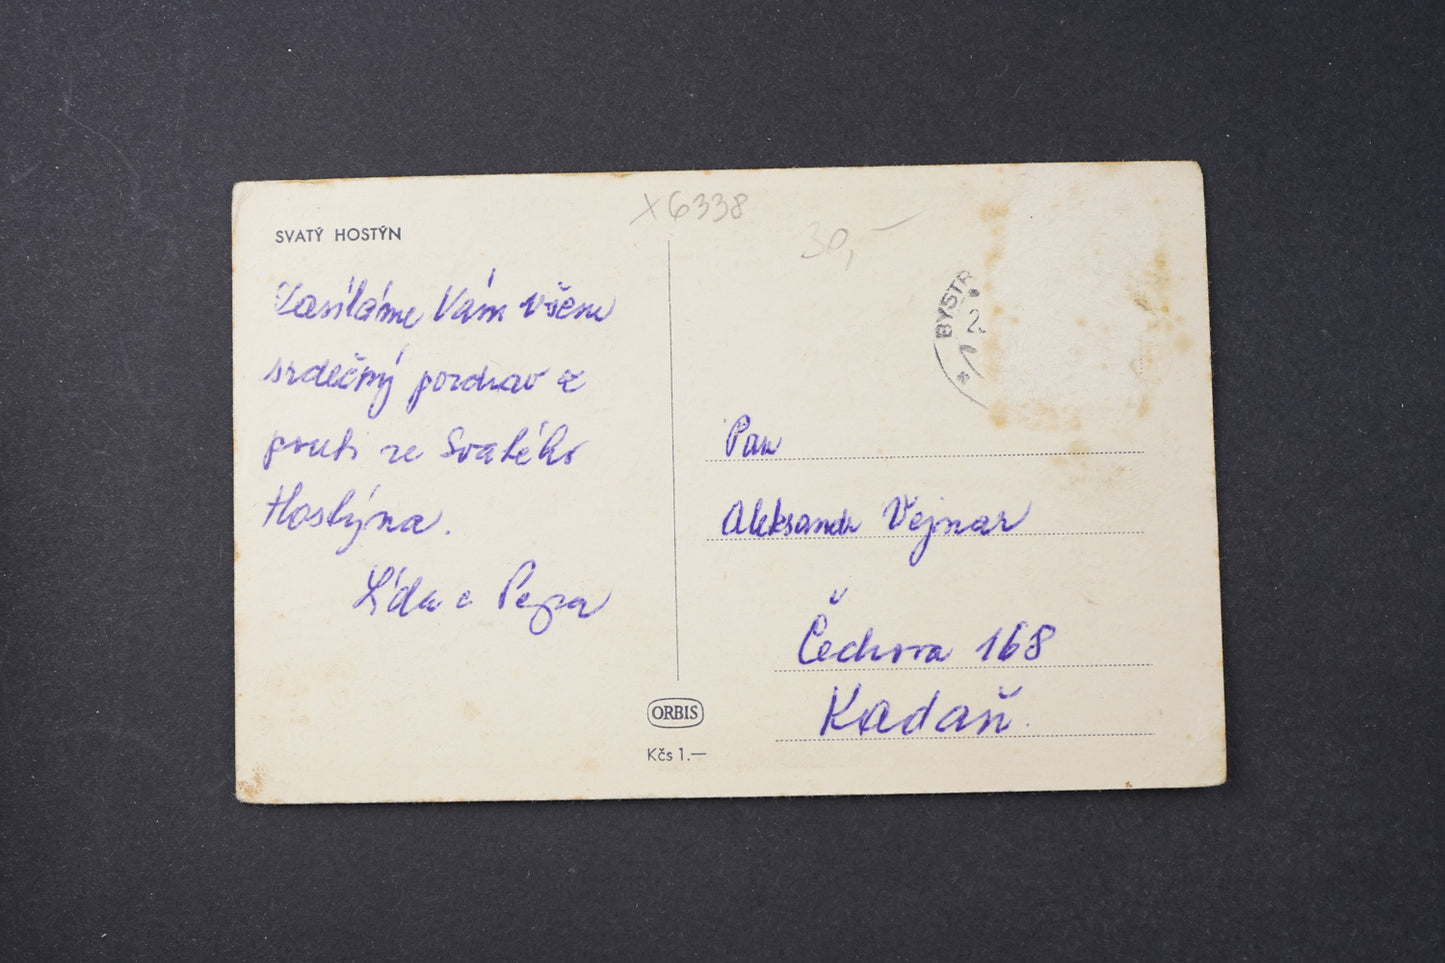 SVATÝ HOSTÝN
X6338
30,-
Zasíláme Vám všem
srdečný pozdrav z
pouti ze Svatého
Hostýna.
Lída a
BYSTR
2
Pan
Aleksandr Vejnar
Čechova 168
Kadaň.
ORBIS
Kčs 1.—